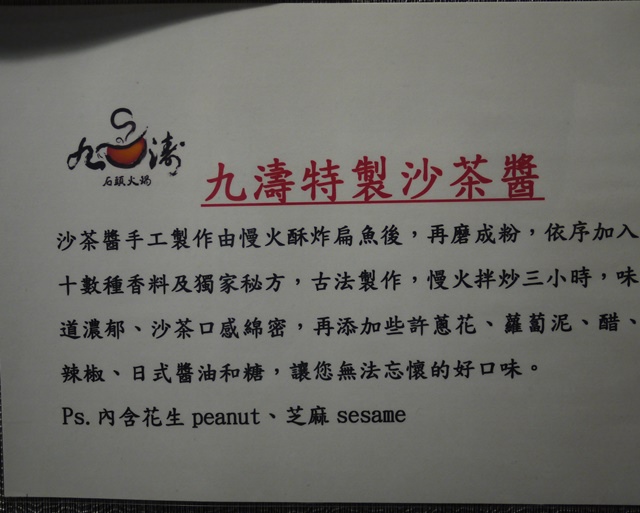 九濤
石頭火鍋
九濤特製沙茶醬
沙茶醬手工製作由慢火酥炸扁魚後，再磨成粉，依序加入
十數種香料及獨家秘方，古法製作，慢火拌炒三小時，味
道濃郁、沙茶口感綿密，再添加些許蔥花、蘿蔔泥、醋、
辣椒、日式醬油和糖，讓您無法忘懷的好口味。
Ps.內含花生 peanut、芝麻 sesame